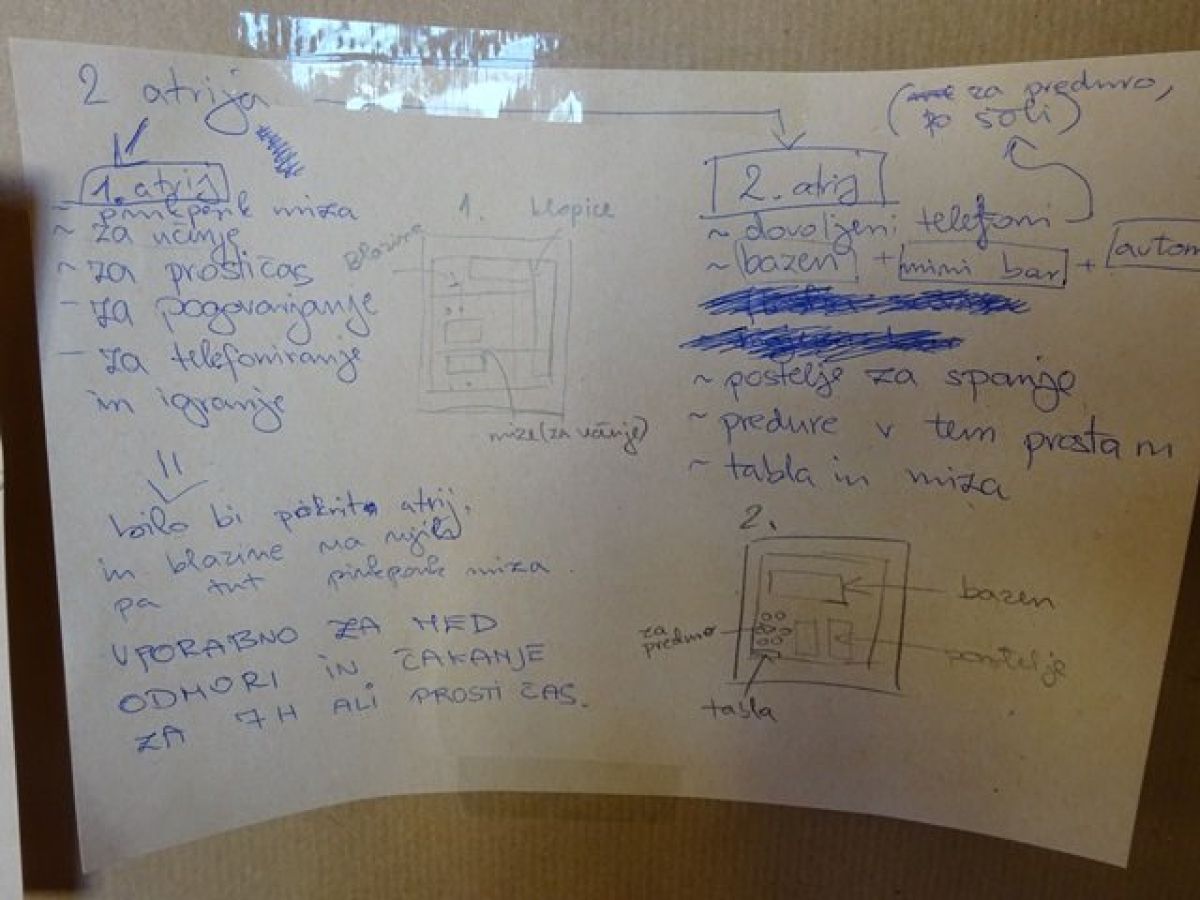 2 atrija
1. atrij
~ pinkponk miza
~ za učenje
~ za prosti čas
- za pogovarjanje
- za telefoniranje
in igranje
bilo bi pokrito atrij,
in blazine na njih
pa tut pinkponk miza.
UPORABNO ZA MED
ODMORI IN ČAKANJE
ZA 7H ALI PROSTI ČAS.
1.
klopice
blazine
mize (za učenje)
(za preduro,
po šoli)
2. atrij
~ dovoljeni telefoni
~ bazen + mini bar + autom
~ postelje za spanje
~ predure v tem prostoru
~ tabla in miza
2.
bazen
za
predmo
postelje
tabla